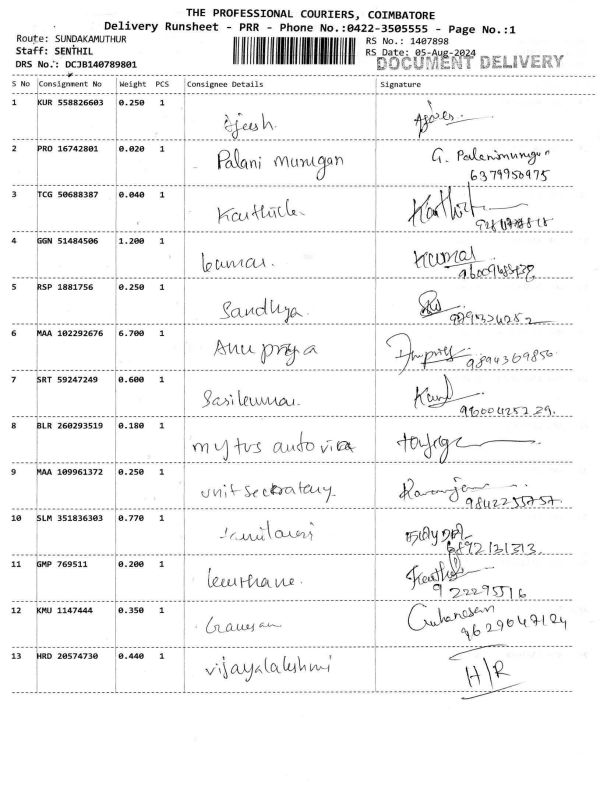 THE PROFESSIONAL COURIERS, COIMBATORE
Delivery Runsheet - PRR - Phone No.:0422-3505555 - Page No.:1
Route: SUNDAKAMUTHUR RS No.: 1407898
Staff: SENTHIL RS Date: 05-Aug-2024
DRS No.: DCJB140789801 DOCUMENT DELIVERY
S No Consignment No Weight PCS Consignee Details Signature
1 KUR 558826603 0.250 1
2 PRO 16742801 0.020 1 Palani murugan G. Palanimurugan
6379950975
3 TCG 50688387 0.040 1 Karthick
4 GGN 51484506 1.200 1 kumar Kumar
5 RSP 1881756 0.250 1 Sandhya
6 MAA 102292676 6.700 1 Anu priya
9894369856
7 SRT 59247249 0.600 1 Sasikumar
8 BLR 260293519 0.180 1 my tvs auto
9 MAA 109961372 0.250 1 unit secratary
9842255757.
10 SLM 351836303 0.770 1
11 GMP 769511 0.200 1
12 KMU 1147444 0.350 1 Ganesan
13 HRD 20574730 0.440 1 vijayalakshmi H/R